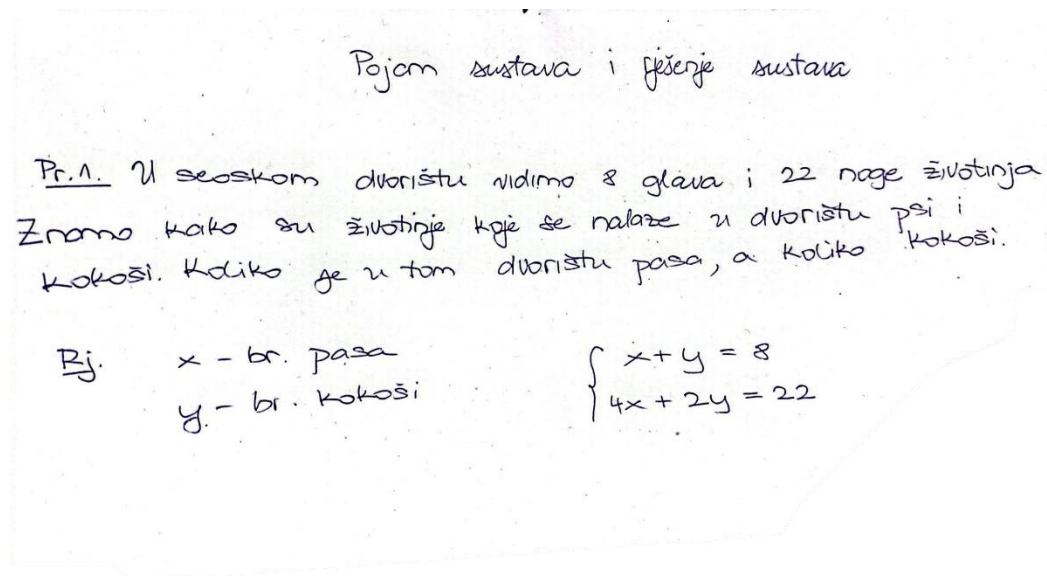 Pojam sustava i rješenje sustava
Pr.1. U seoskom dvorištu vidimo 8 glava i 22 noge životinja
Znamo kako su životinje koje se nalaze u dvorištu psi i
kokoši. Koliko je u tom dvorištu pasa, a koliko kokoši.
Rj. x - br. pasa
y - br. kokoši
x + y = 8
4x + 2y = 22